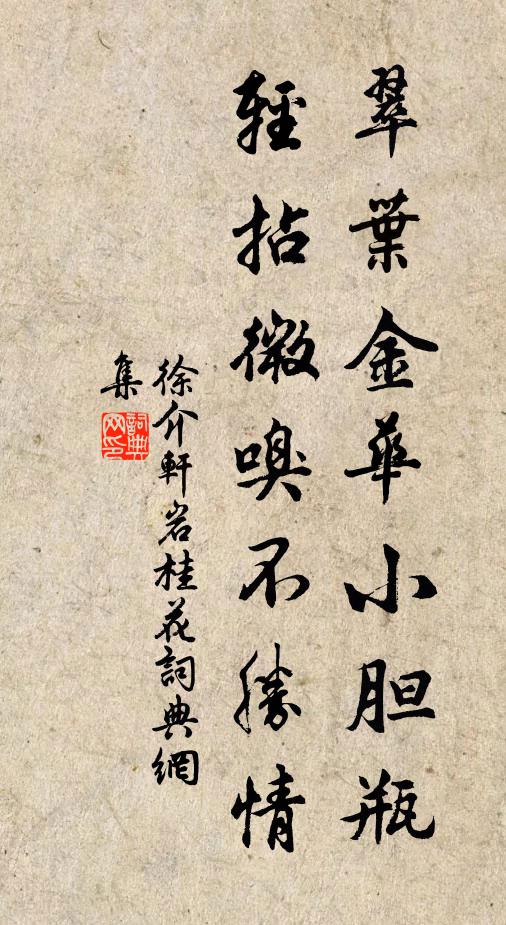 翠葉金華小胆瓶
輕拈微嗅不勝情
徐介軒岩桂花詞典網
集
詞典網印